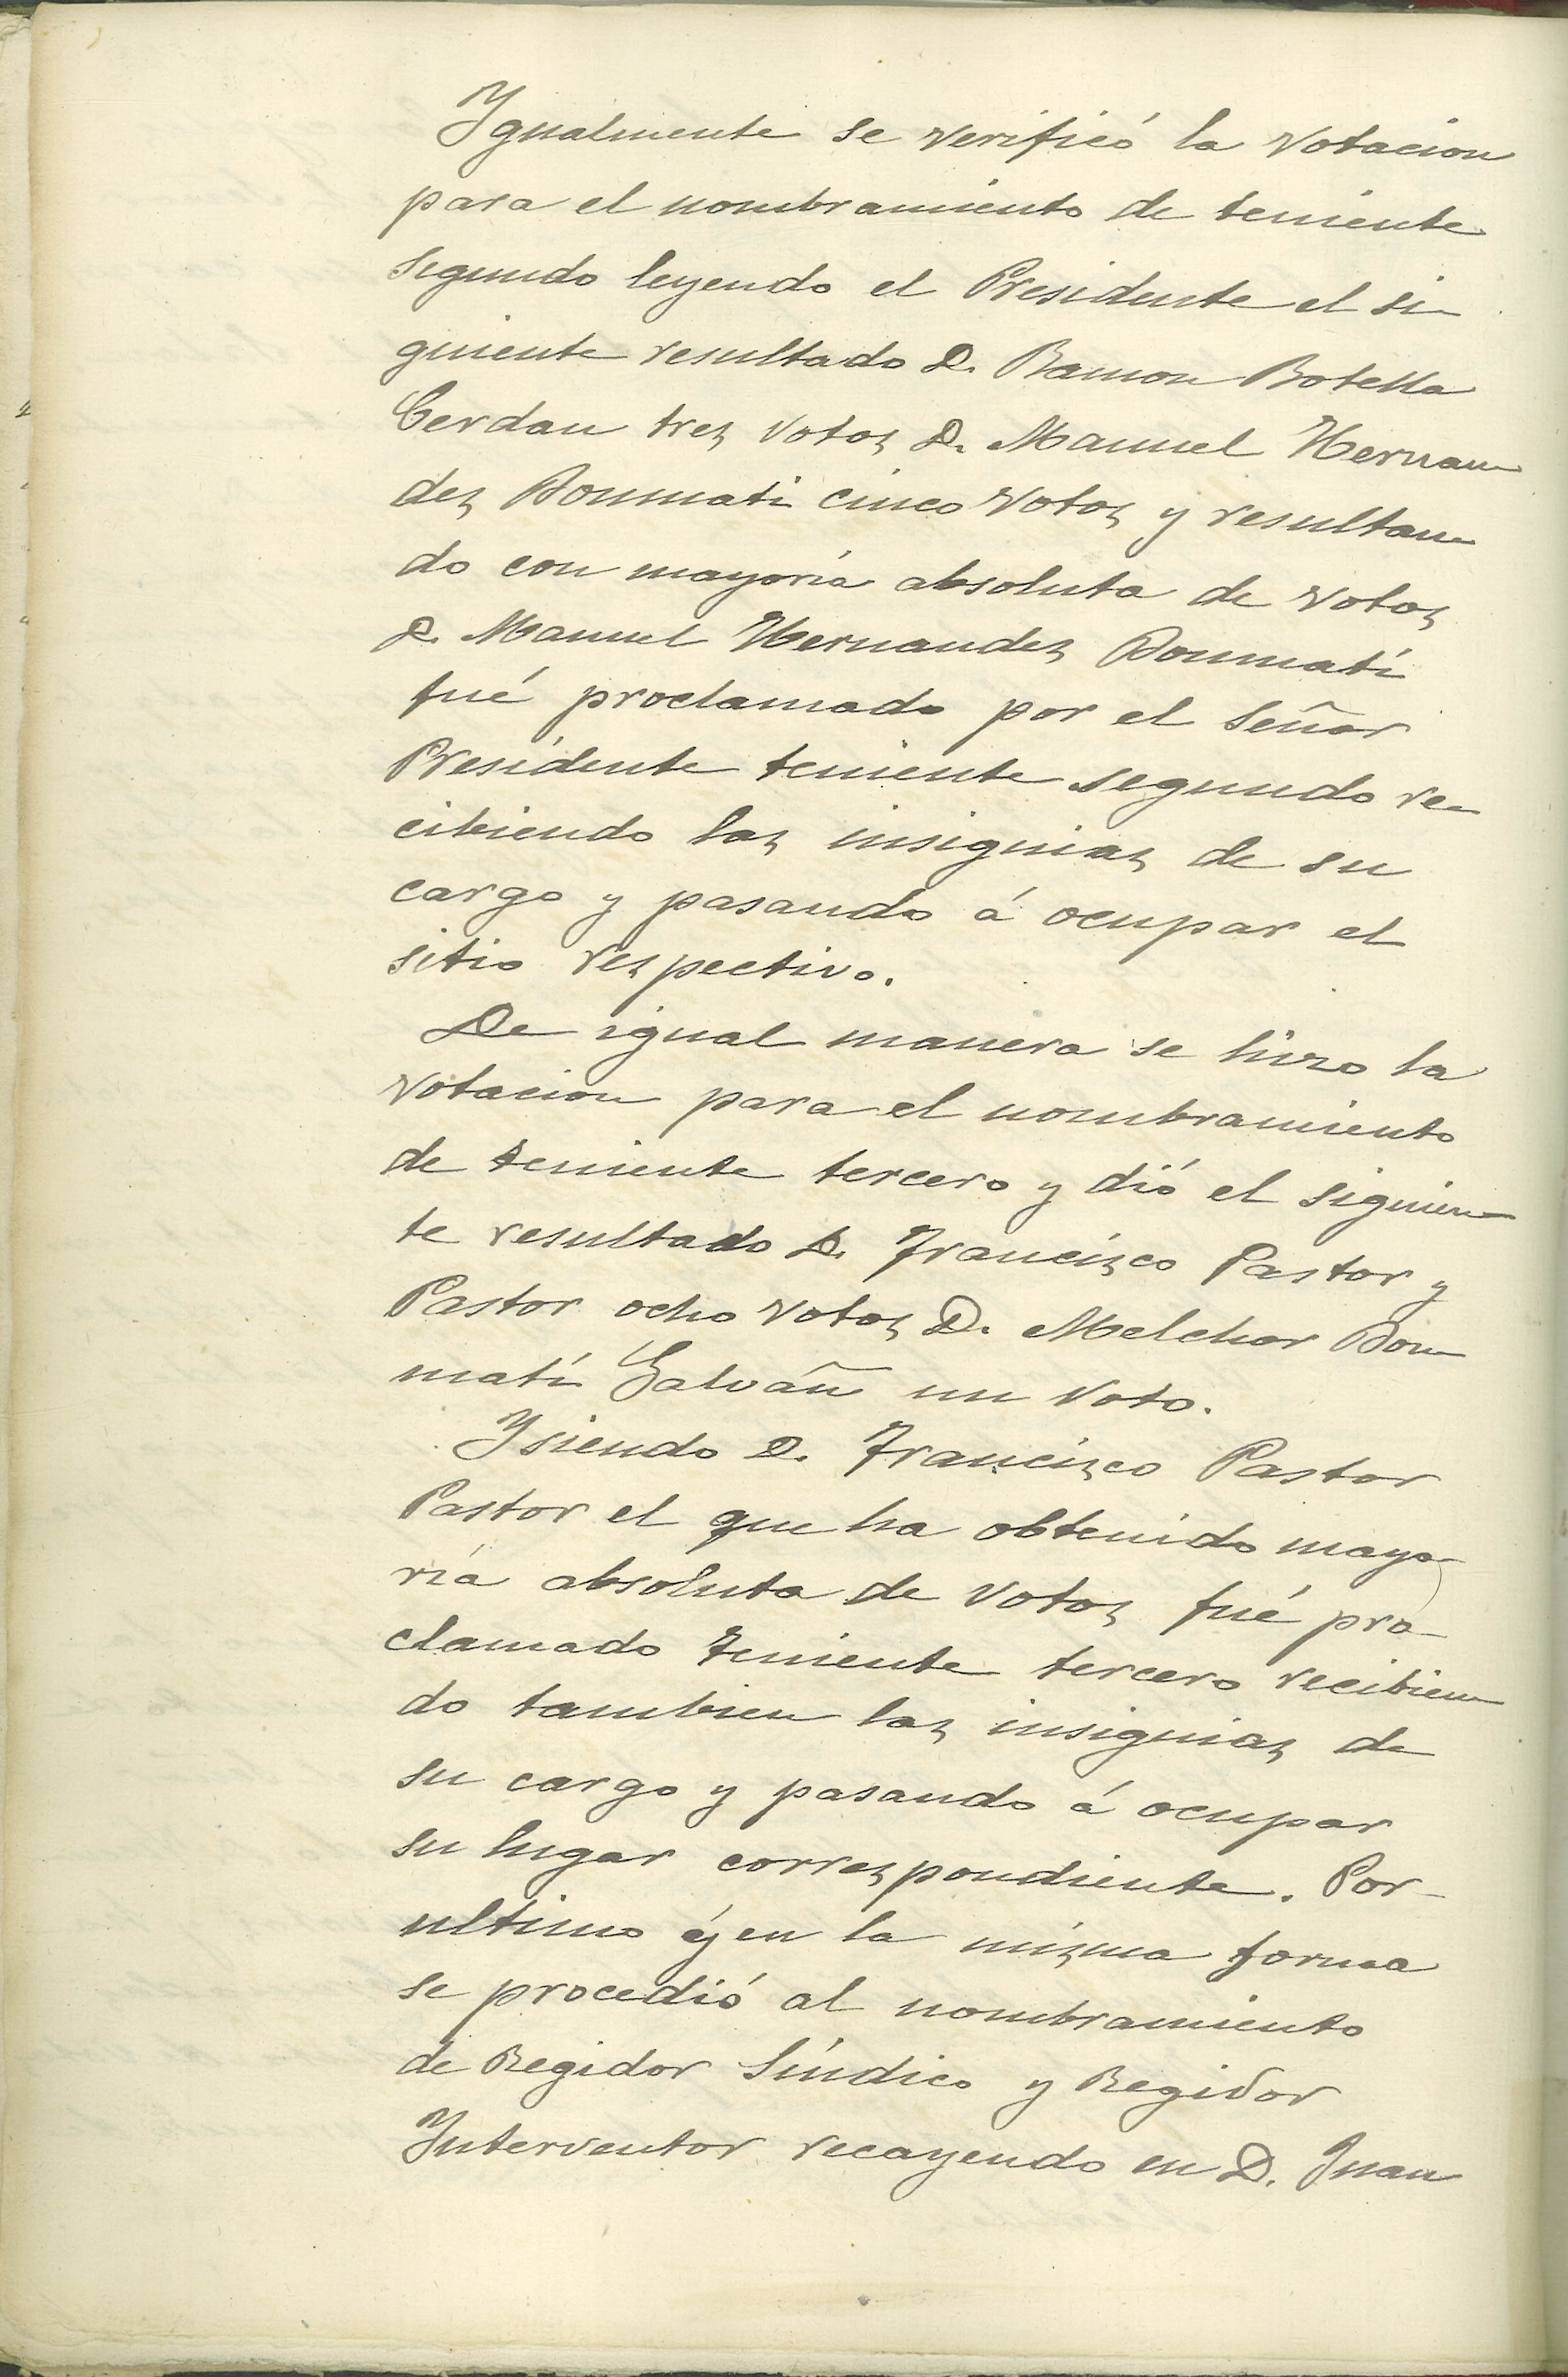 Igualmente se verificó la votacion
para el nombramiento de teniente
segundo leyendo el Presidente el si-
guiente resultado D. Ramon Botella
Cerdan tres votos D. Manuel Hernan-
dez Bonmati cinco votos y resultan-
do con mayoría absoluta de votos
D. Manuel Hernandez Bonmatí
fué proclamado por el Señor
Presidente teniente segundo re-
cibiendo las insignias de su
cargo y pasando á ocupar el
sitio respectivo.
De igual manera se hizo la
votacion para el nombramiento
de teniente tercero y dió el siguien-
te resultado D. Francisco Pastor y
Pastor ocho votos D. Melchor Bon-
matí Galváñ un voto.
Y siendo D. Francisco Pastor
Pastor el que ha obtenido mayo-
ría absoluta de votos fué pro-
clamado teniente tercero recibien-
do tambien las insignias de
su cargo y pasando á ocupar
su lugar correspondiente. Por-
ultimo y en la misma forma
se procedió al nombramiento
de Regidor Síndico y Regidor
Interventor recayendo en D. Juan